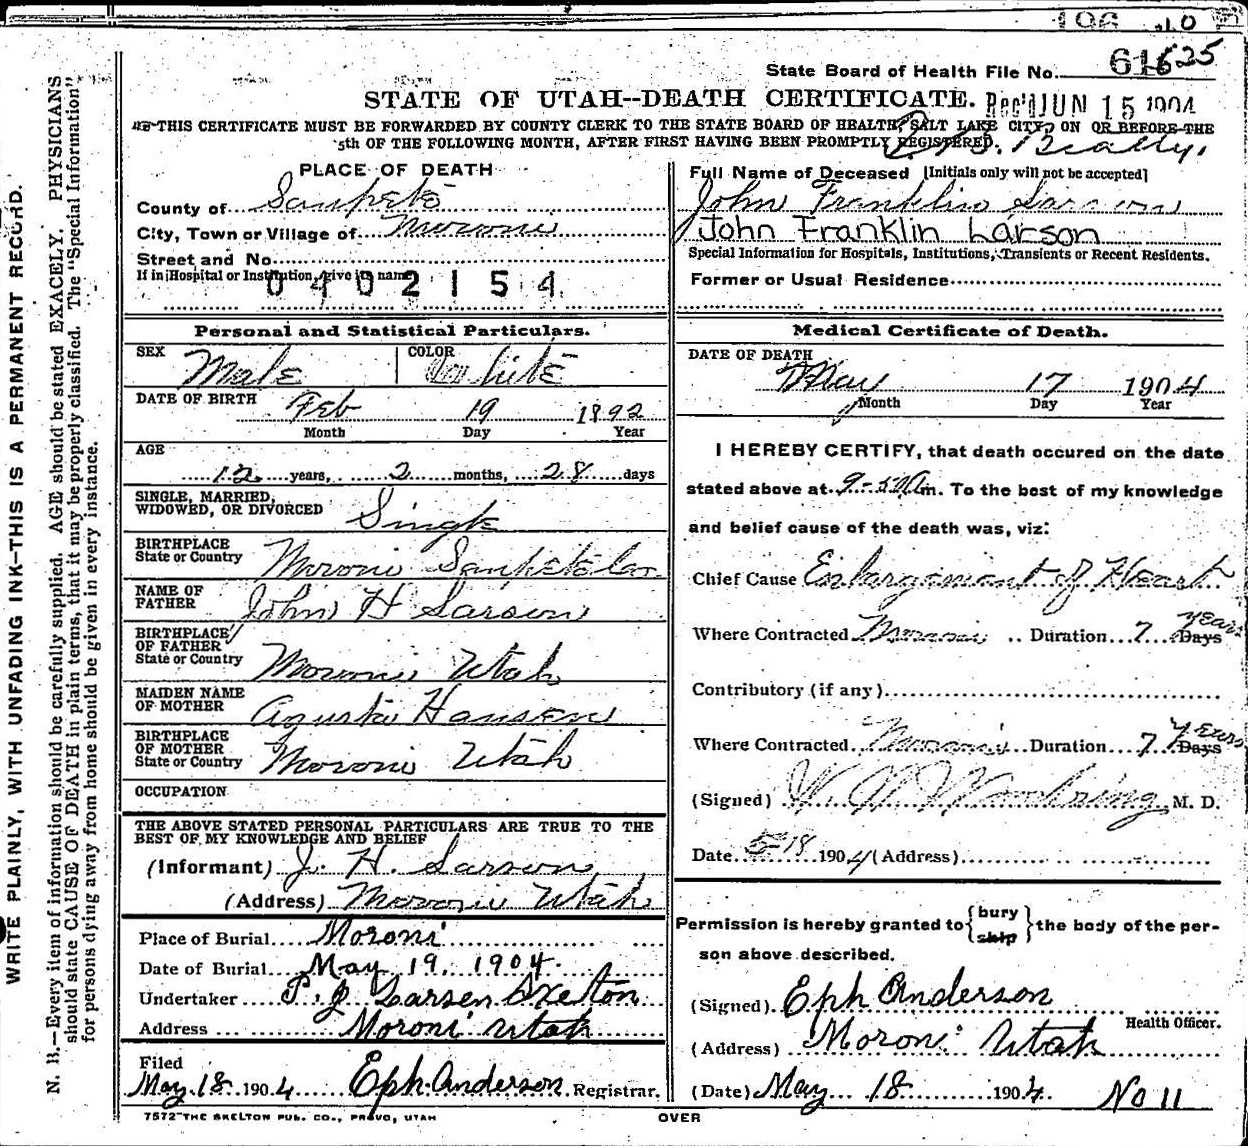 196 10
State Board of Health File No. 61625
STATE OF UTAH--DEATH CERTIFICATE. Rec'd JUN 15 1904
THIS CERTIFICATE MUST BE FORWARDED BY COUNTY CLERK TO THE STATE BOARD OF HEALTH, SALT LAKE CITY, ON OR BEFORE THE
5th OF THE FOLLOWING MONTH, AFTER FIRST HAVING BEEN PROMPTLY REGISTERED.
Beatty.
PLACE OF DEATH
County of Sanpete
City, Town or Village of Moroni
Street and No.
If in Hospital or Institution, give its name
0402154
Full Name of Deceased [Initials only will not be accepted]
John Franklin Larson
John Franklin Larson
Special Information for Hospitals, Institutions, Transients or Recent Residents.
Former or Usual Residence
Personal and Statistical Particulars.
SEX Male COLOR White
DATE OF BIRTH Feb 19 1892
Month Day Year
AGE
12 years, 2 months, 28 days
SINGLE, MARRIED,
WIDOWED, OR DIVORCED Single
BIRTHPLACE
State or Country Moroni Sanpete Co
NAME OF
FATHER John H Larson
BIRTHPLACE
OF FATHER
State or Country Moroni Utah
MAIDEN NAME
OF MOTHER Agusta Hansen
BIRTHPLACE
OF MOTHER
State or Country Moroni Utah
OCCUPATION
THE ABOVE STATED PERSONAL PARTICULARS ARE TRUE TO THE
BEST OF MY KNOWLEDGE AND BELIEF
(Informant) J. H. Larson
(Address) Moroni Utah
Place of Burial Moroni
Date of Burial May 19, 1904.
Undertaker P. J. Larsen
Address Moroni Utah
Filed
May 18 1904 Eph Anderson Registrar.
7572 THE SKELTON PUB. CO., PROVO, UTAH
Medical Certificate of Death.
DATE OF DEATH
May 17 1904
Month Day Year
I HEREBY CERTIFY, that death occured on the date
stated above at 9- m. To the best of my knowledge
and belief cause of the death was, viz:
Chief Cause Enlargement of Heart
Where Contracted Moroni Duration 7 years Days
Contributory (if any)
Where Contracted Moroni Duration 7 Years Days
(Signed) M. D.
Date 5-18 1904 (Address)
Permission is hereby granted to {bury ship} the body of the per-
son above described.
(Signed) Eph Anderson
Health Officer.
(Address) Moroni Utah
(Date) May 18 1904 No 11
OVER
WRITE PLAINLY, WITH UNFADING INK—THIS IS A PERMANENT RECORD.
N. B.—Every item of information should be carefully supplied. AGE should be stated EXACELY. PHYSICIANS
should state CAUSE OF DEATH in plain terms, that it may be properly classified. The "Special Information"
for persons dying away from home should be given in every instance.